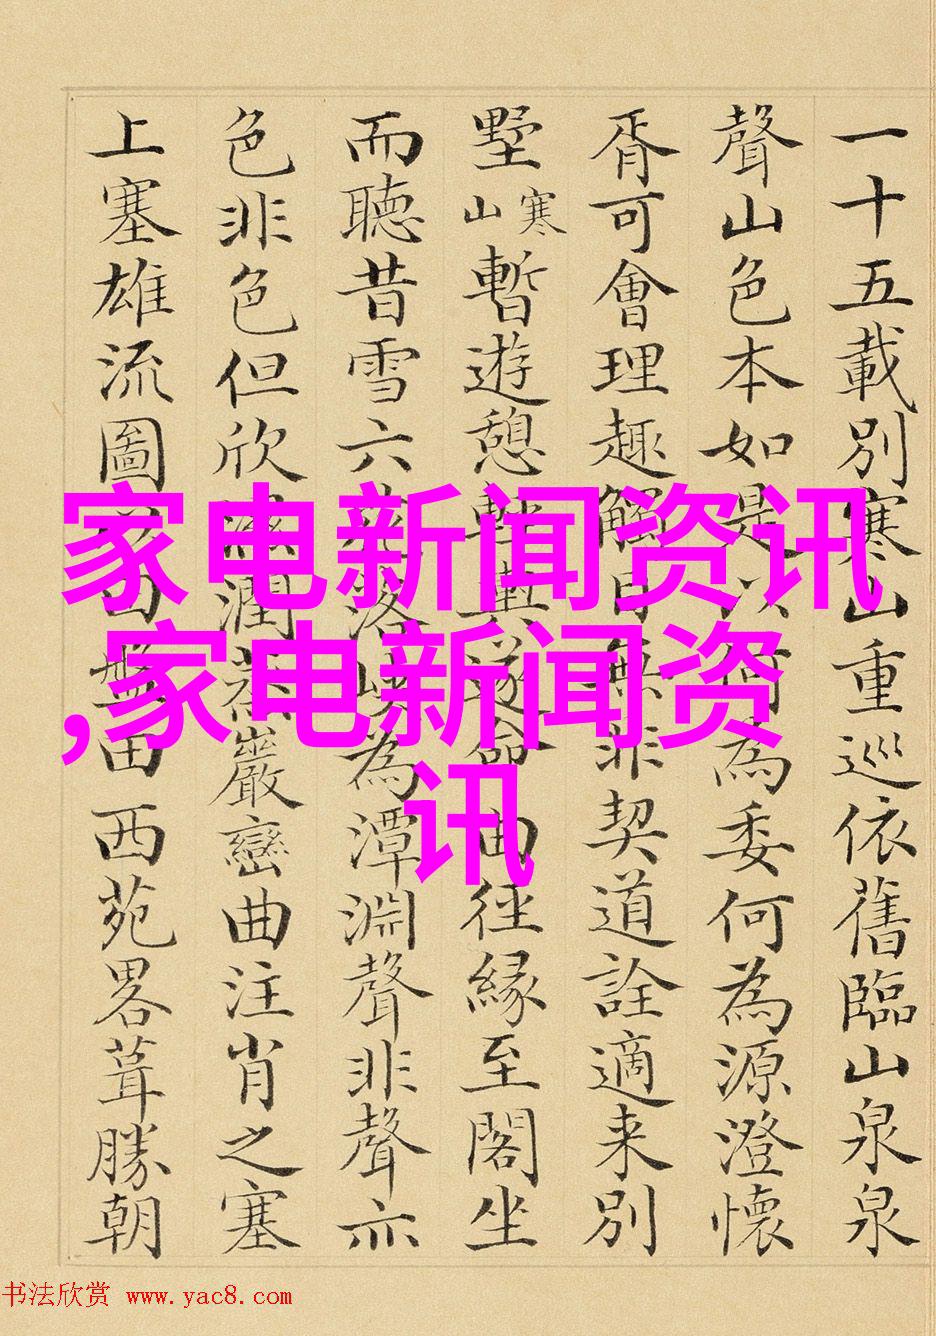 一十五載別寒山重巡依舊臨山泉泉
聲山色本如是以何為委何為源澄懷
胥可會理趣觸目無非契道詮適来別
墅寒山暫遊憩軽輿遂命由徑緣至閣坐
而聽昔雪六落峽為潭淵聲非聲亦
色非色但欣潤蒼巖巒曲注肖之塞
上塞雄流圖田西苑畧葺勝朝
家电新闻资讯
,家电新闻资
讯
书法欣赏 www.yac8.com